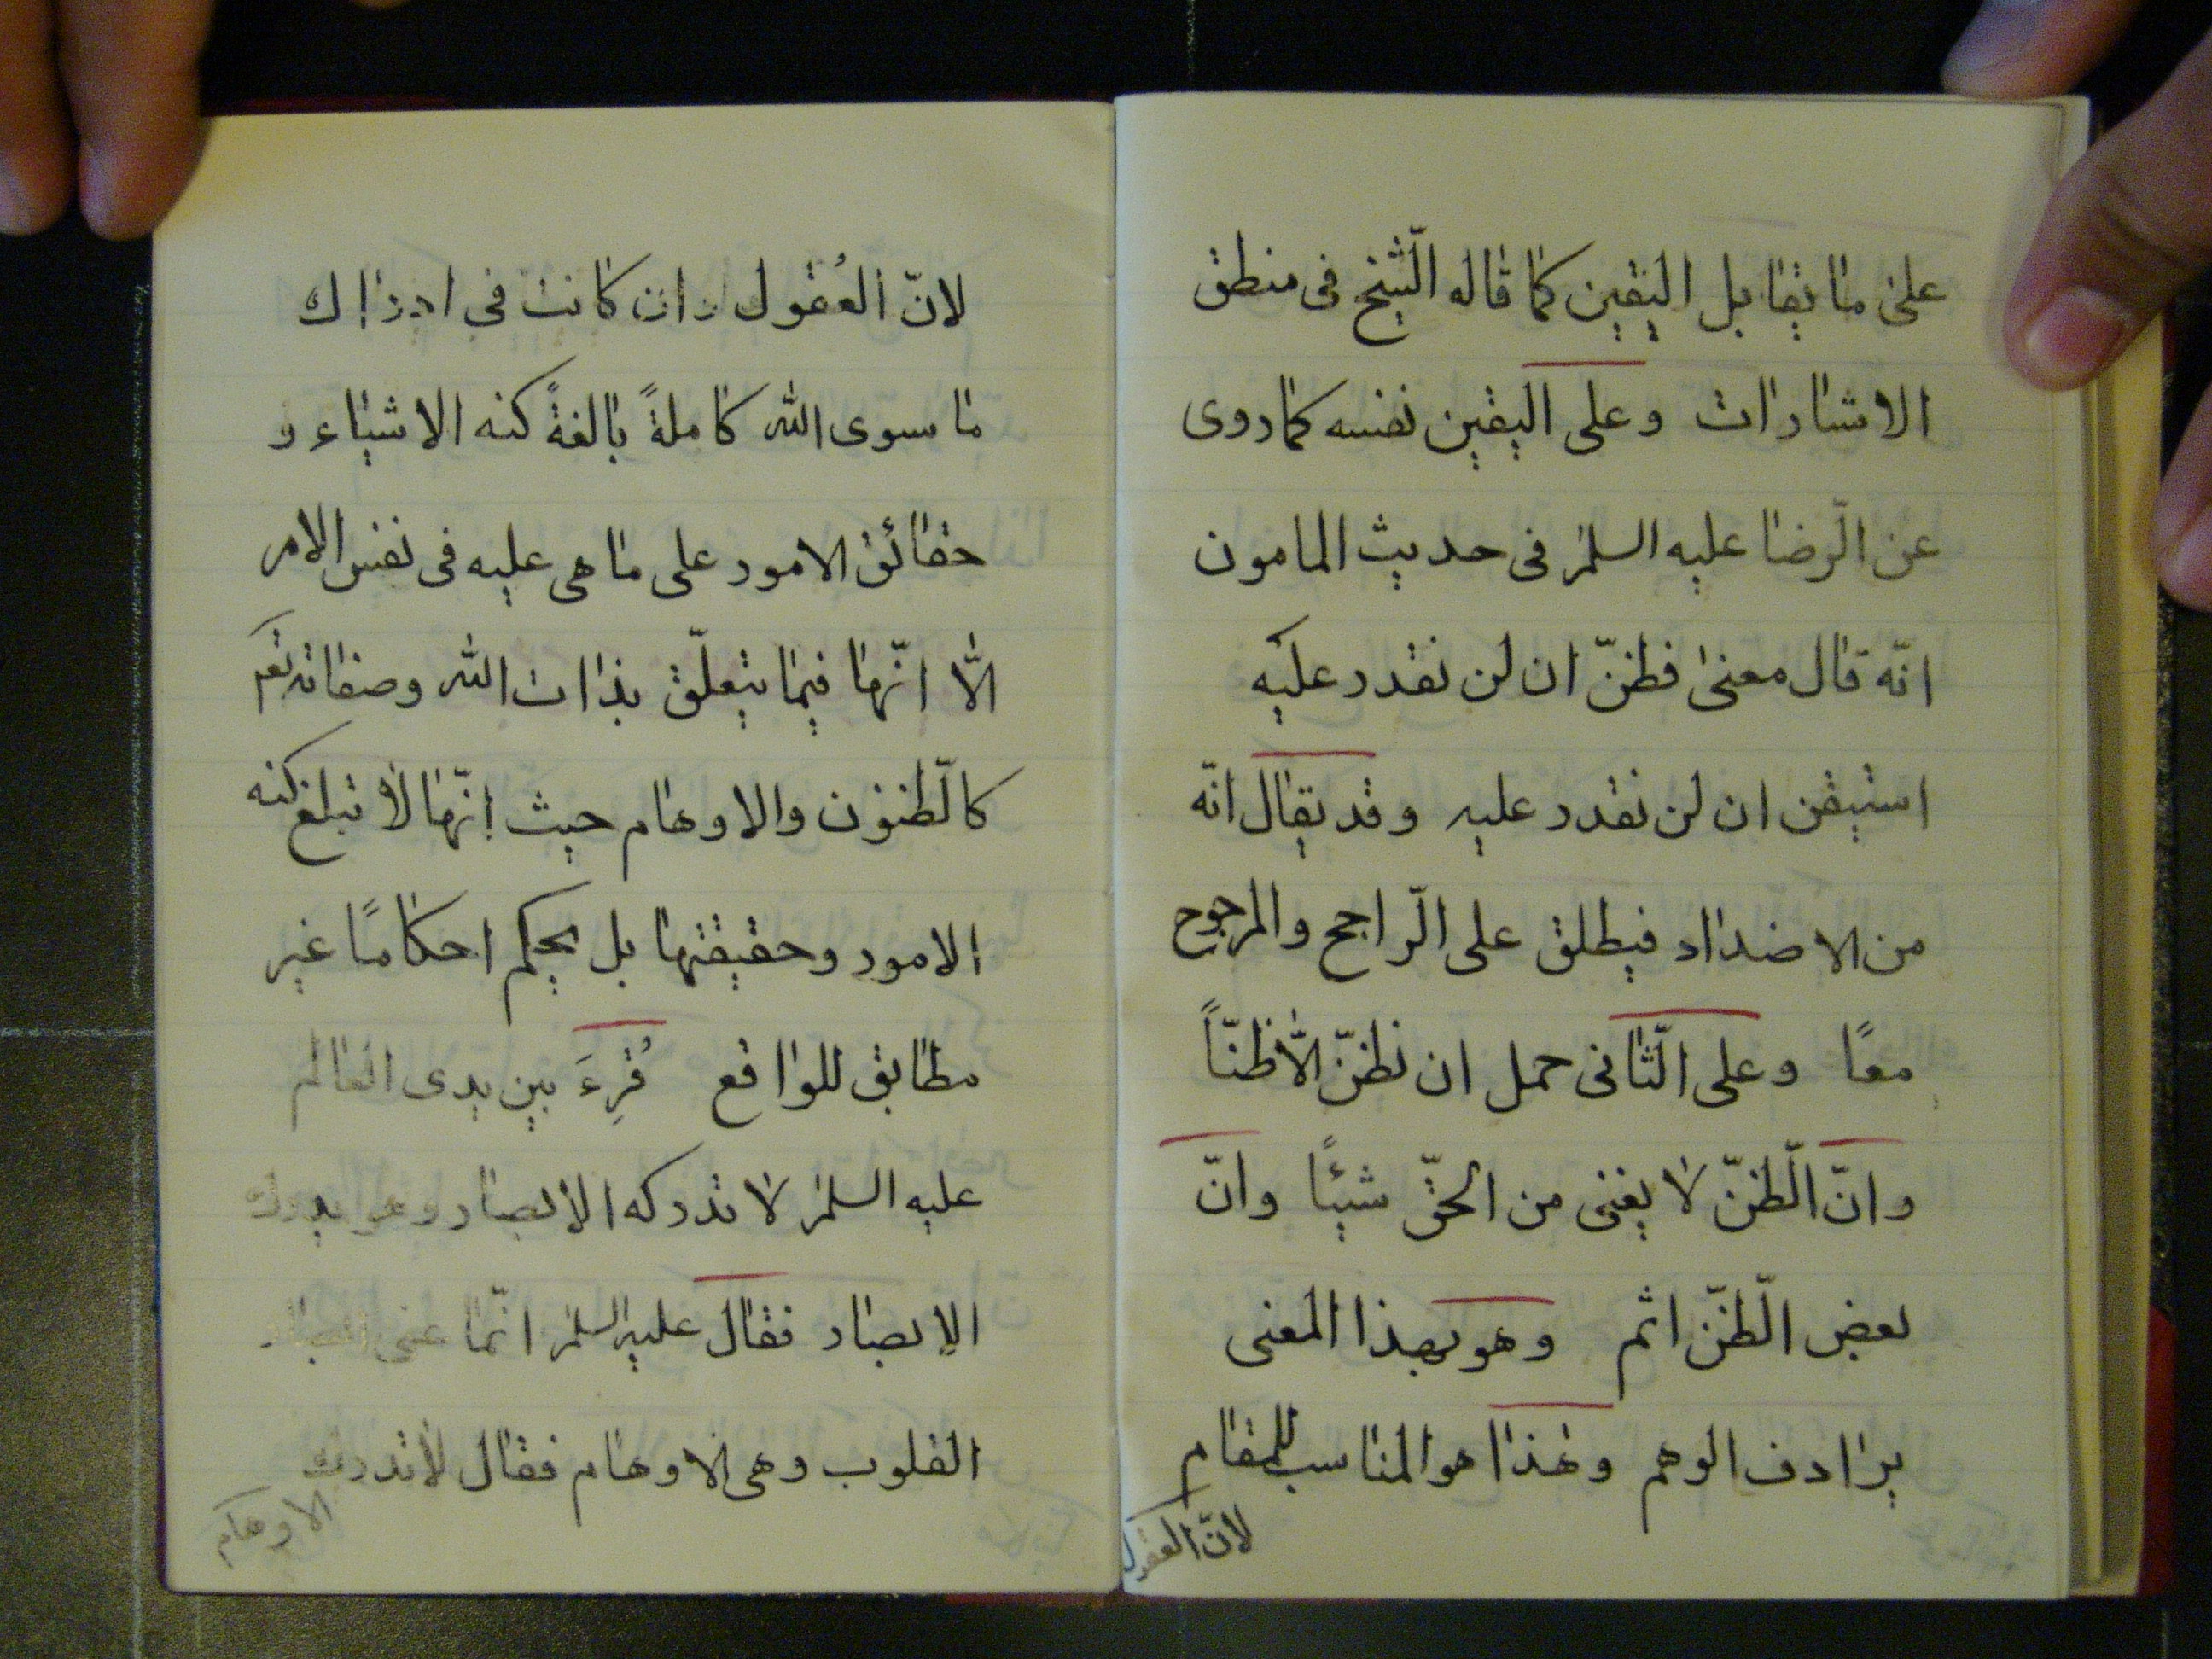 علی ما یقابل الیقین کما قاله الشّیخ فی منطق
الاشارات وعلی الیقین نفسه کما روی
عن الرّضا علیه السلم فی حدیث المامون
انّه قال معنی فظنّ ان لن نقدر علیه
استیقن ان لن نقدر علیه وقد یقال انّه
من الاضداد فیطلق علی الرّاجح والمرجوح
معًا وعلی الثّانی حمل ان نظنّ الّا ظنّاً
وانّ الظنّ لا یغنی من الحقّ شیئًا وانّ
بعض الظّنّ اثم وهو بهذا المعنی
یرادف الوهم وهذا هو المناسب للمقام
لانّ العقول
لانّ العُقول وان کانت فی ادراك
ما سوی الله کاملةً بالغةً کنه الاشیاء و
حقائق الامور علی ما هی علیه فی نفس الامر
الّا انّها فیما یتعلّق بذات الله وصفاته
کالظّنون والاوهام حیث انّها لا تبلغ کنه
الامور وحقیقتها بل یحکم احکامًا غیر
مطابق للواقع قُرِءَ بین یدی العالم
علیه السلم لا تدرکه الابصار وهو یدرك
الابصار فقال علیه السلم انّما عنی ابصار
القلوب وهی الاوهام فقال لا تدرکه
الاوهام